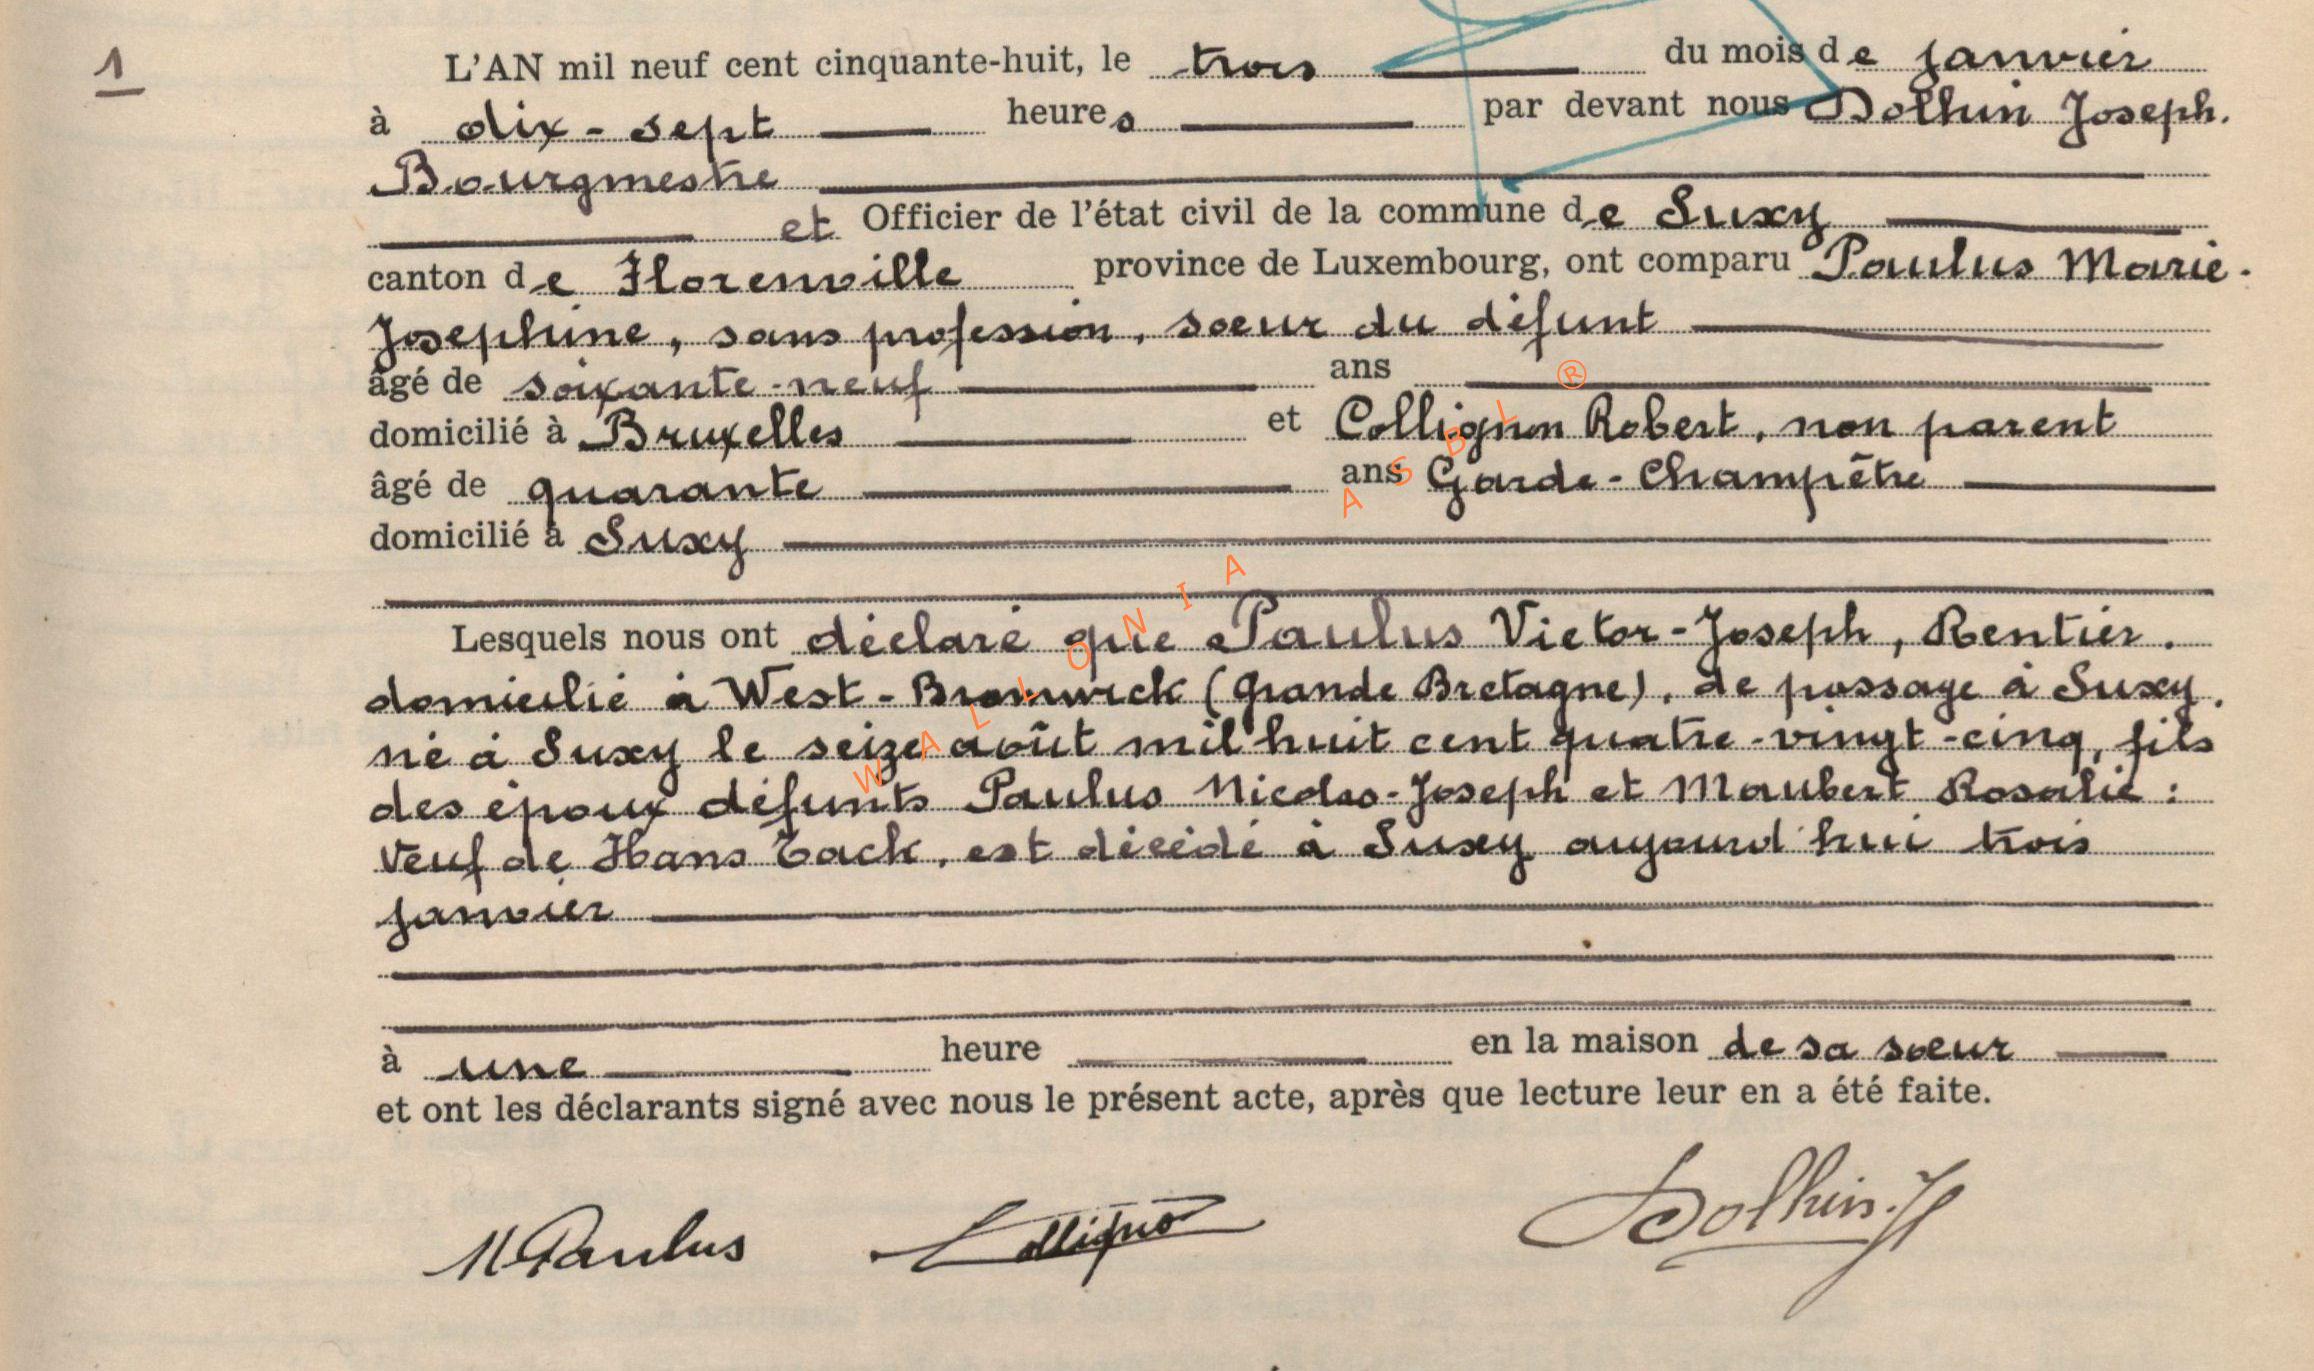 1
L'AN mil neuf cent cinquante-huit, le trois du mois de janvier
à dix-sept heures par devant nous Dolhin Joseph.
Bourgmestre
et Officier de l'état civil de la commune de Suxy
canton de Florenville province de Luxembourg, ont comparu Paulus Marie-
Josephine, sans profession, soeur du défunt
âgé de soixante-neuf ans
domicilié à Bruxelles et Collignon Robert, non parent
âgé de quarante ans Garde-Champêtre
domicilié à Suxy
Lesquels nous ont déclaré que Paulus Victor-Joseph, Rentier.
domicilié à West-Bromwick (Grande Bretagne), de passage à Suxy,
né à Suxy le seize août mil huit cent quatre-vingt-cinq, fils
des époux défunts Paulus Nicolas-Joseph et Maubert Rosalie:
Veuf de Hans Tack, est décédé à Suxy aujourd'hui trois
janvier
à une heure en la maison de sa soeur
et ont les déclarants signé avec nous le présent acte, après que lecture leur en a été faite.
M Paulus Collignon Dolhin. J
WALLONIA ASBL ®